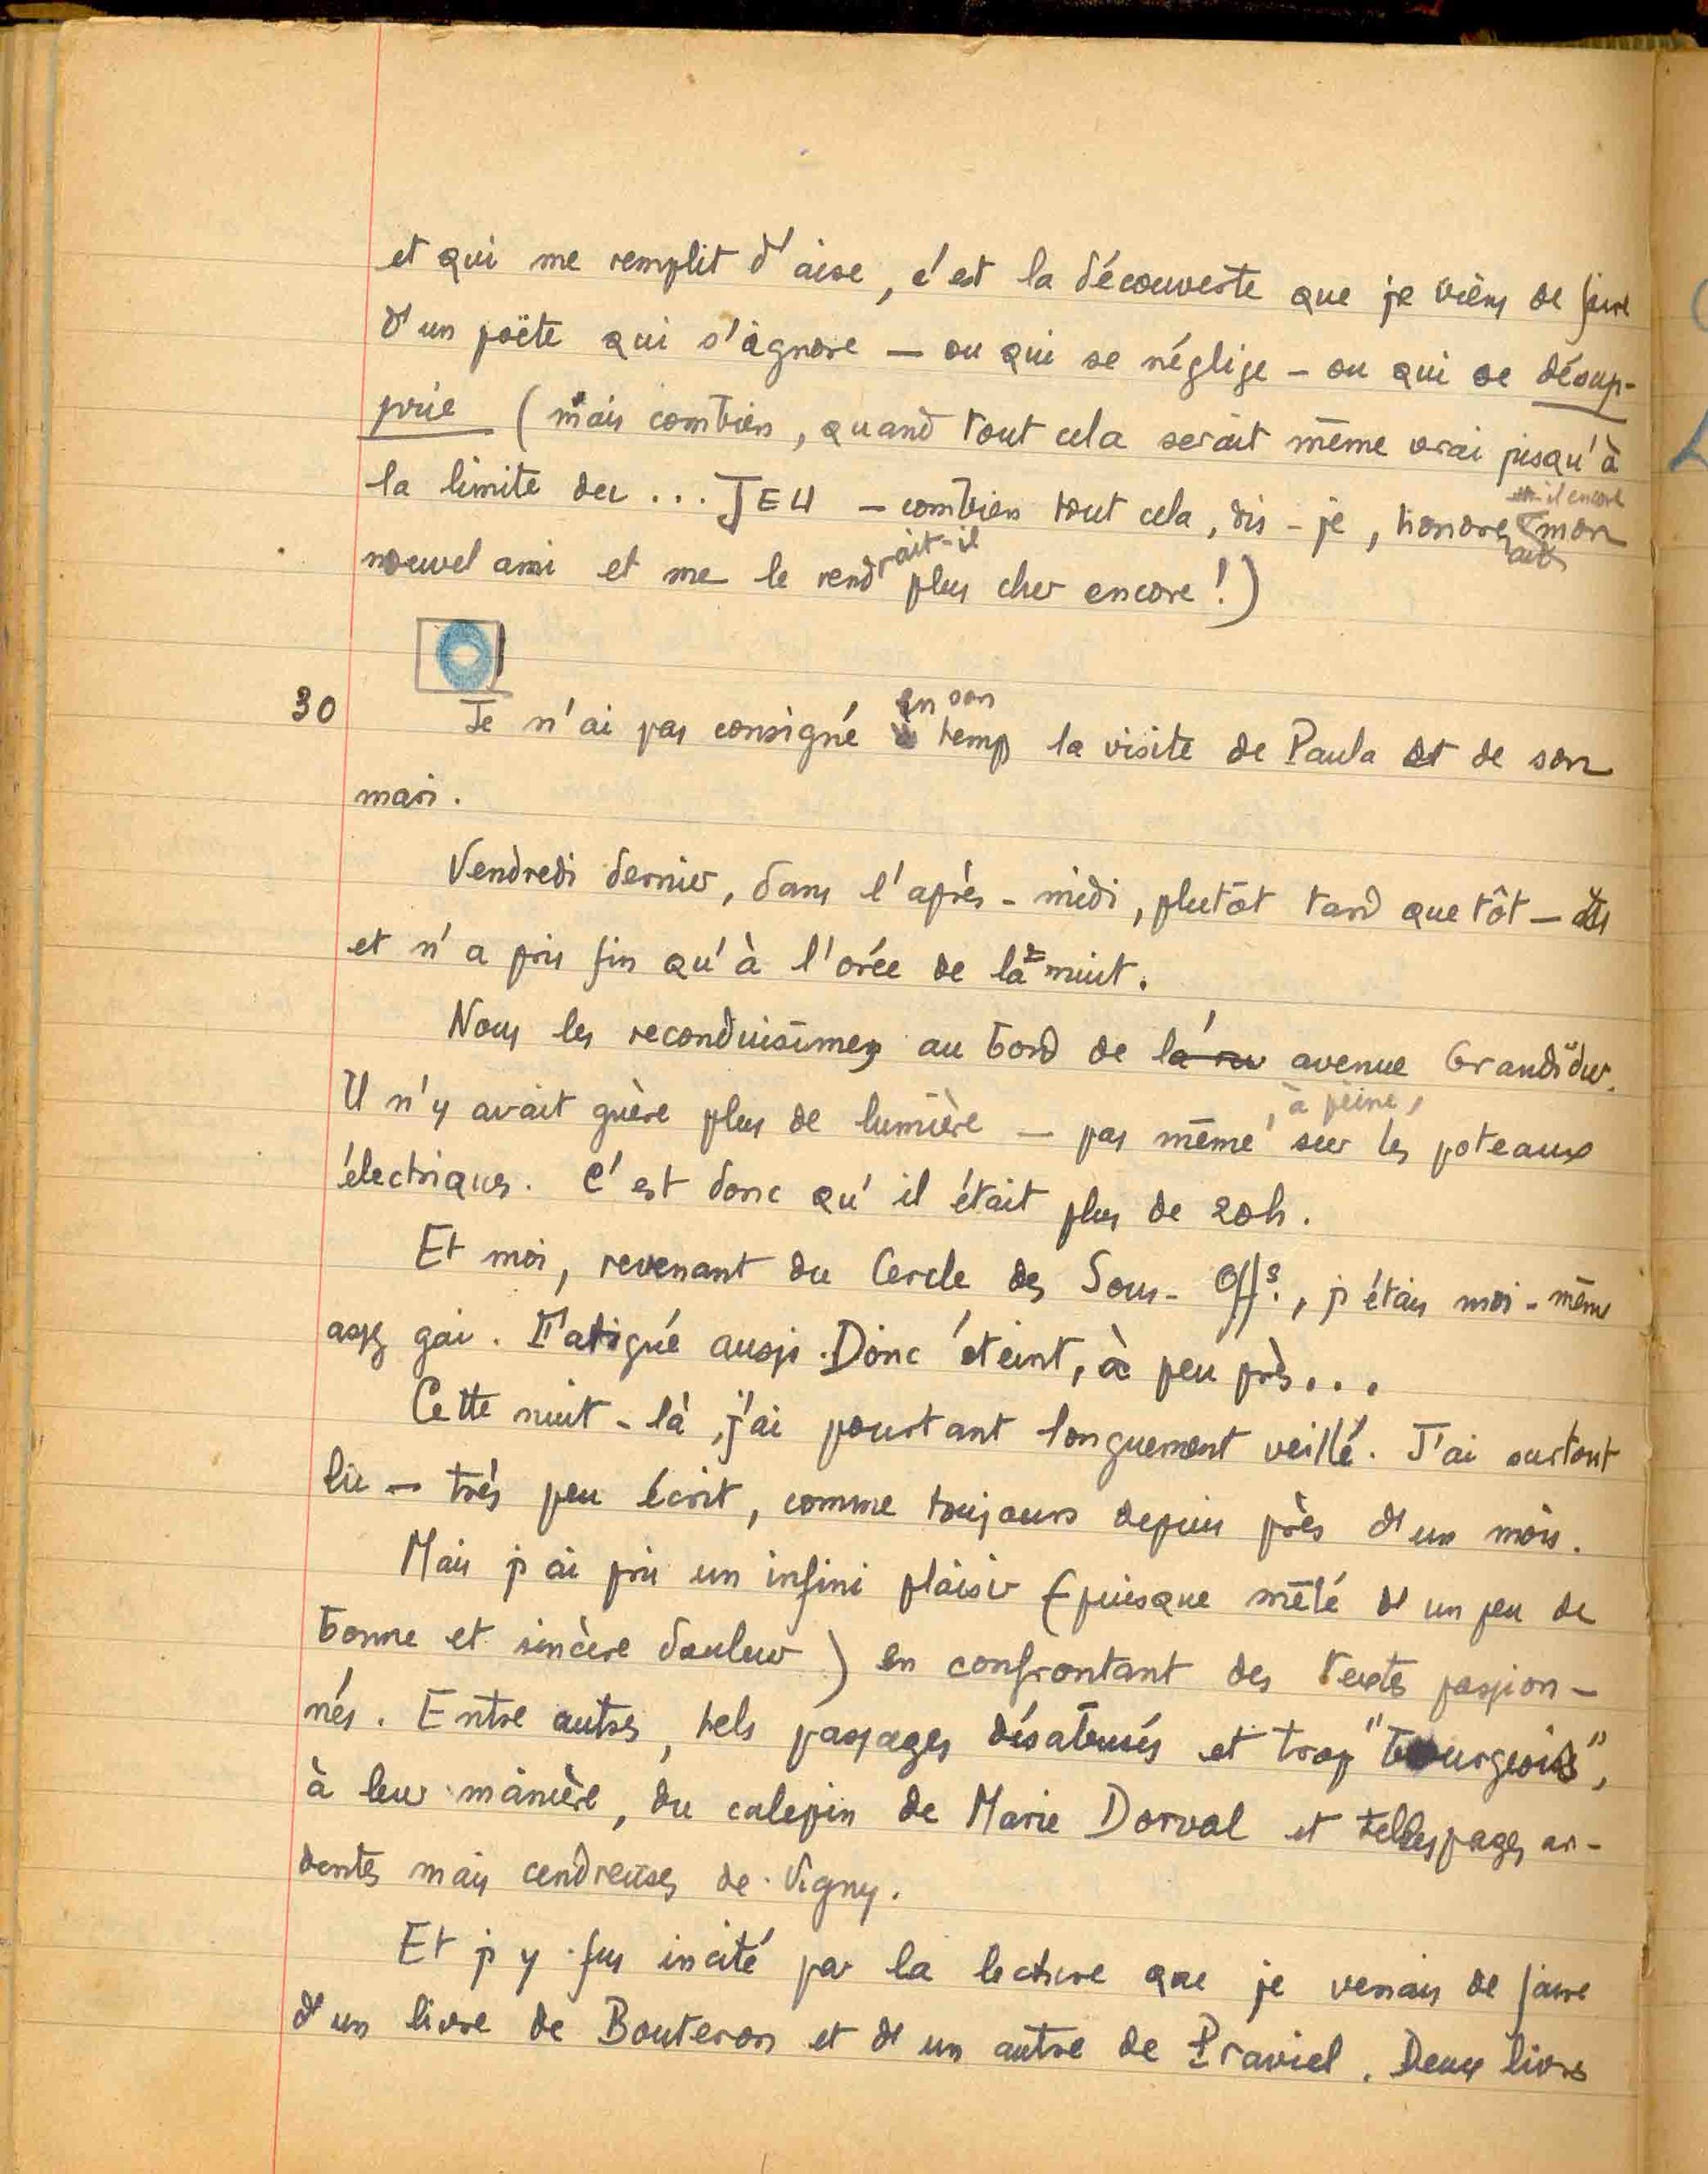 et qui me remplit d'aise, c'est la découverte que je viens de faire
d'un poëte qui s'ignore — ou qui se néglige — ou qui se désap-
prie (mais combien, quand tout cela serait même vrai jusqu'à
la limite du ... JEU — combien tout cela, dis-je, honorerait-il encore mon
nouvel ami et me le rendrait-il plus cher encore !)
30 Je n'ai pas consigné en son temps la visite de Paula et de son
mari.
Vendredi dernier, dans l'après-midi, plutôt tard que tôt —
et n'a pris fin qu'à l'orée de la nuit.
Nous les reconduisîmes au bord de l'avenue Grandidier.
Il n'y avait guère plus de lumière — pas même, à peine, sur les poteaux
électriques. C'est donc qu'il était plus de 20h.
Et moi, revenant du Cercle des Sous-Offs., j'étais moi-même
assez gai. Fatigué aussi. Donc éteint, à peu près...
Cette nuit-là, j'ai pourtant longuement veillé. J'ai surtout
lu — très peu écrit, comme toujours depuis près d'un mois.
Mais j'ai pris un infini plaisir (puisque mêlé d'un peu de
bonne et sincère douleur) en confrontant des textes passion-
nés. Entre autres, tels passages désabusés et trop "bourgeois",
à leur manière, du calepin de Marie Dorval et telles pages ar-
dentes mais cendreuses de Vigny.
Et j'y fus incité par la lecture que je venais de faire
d'un livre de Bouteron et d'un autre de Praviel. Deux livres